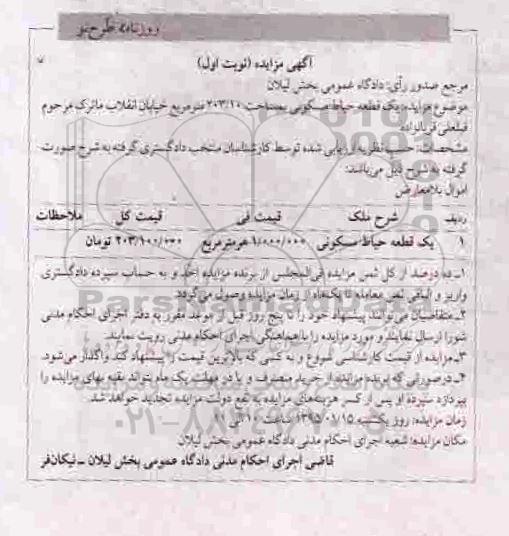 روزنامه طرح نو
آگهی مزایده (نوبت اول)
مرجع صدور رأی: دادگاه عمومی بخش لیلان
موضوع مزایده: یک قطعه حیاط مسکونی بمساحت ۲۰۳/۱۰ مترمربع خیابان انقلاب ماترک مرحوم
قربانزاده
مشخصات: حسب نظریه ارزیابی شده توسط کارشناسان منتخب دادگستری گرفته به شرح صورت
گرفته به شرح ذیل می‌باشد:
اموال بلامعارض
ردیف شرح ملک قیمت فی قیمت کل ملاحظات
۱ یک قطعه حیاط مسکونی ۱/۰۰۰/۰۰۰ هرمترمربع ۲۰۳/۱۰۰/۰۰۰ تومان
۱ـ ده درصد از کل ثمن مزایده فی‌المجلس از برنده مزایده اخذ و به حساب سپرده دادگستری
واریز و الباقی ثمن معامله تا یکماه از زمان مزایده وصول می‌گردد.
۲ـ متقاضیان می‌توانند پیشنهاد خود را تا پنج روز قبل از موعد مقرر به دفتر اجرای احکام مدنی
شورا ارسال نمایند و مورد مزایده را با هماهنگی اجرای احکام مدنی رویت نمایند.
۳ـ مزایده از قیمت کارشناسی شروع و به کسی که بالاترین قیمت را پیشنهاد کند واگذار می‌شود.
۴ـ درصورتی که برنده مزایده از خرید منصرف و یا در مهلت یک ماه نتواند بقیه بهای مزایده را
بپردازد سپرده او پس از کسر هزینه‌های مزایده به نفع دولت مزایده تجدید خواهد شد.
زمان مزایده: روز یکشنبه ۱۳۹۵/۰۸/۱۵ ساعت ۱۰ الی ۱۱
مکان مزایده: شعبه اجرای احکام مدنی دادگاه عمومی بخش لیلان
قاضی اجرای احکام مدنی دادگاه عمومی بخش لیلان ـ نیکان‌فر